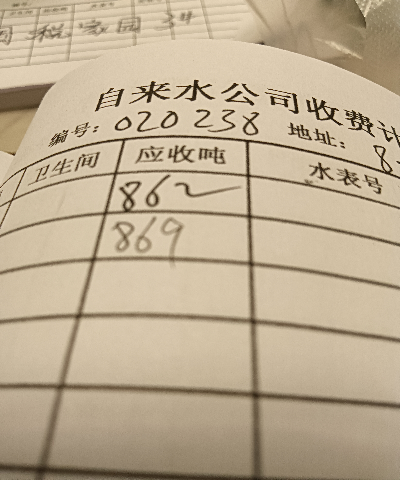 税家园 34
自来水公司收费计
编号：020238 地址：8
卫生间 应收吨 水表号
862
869